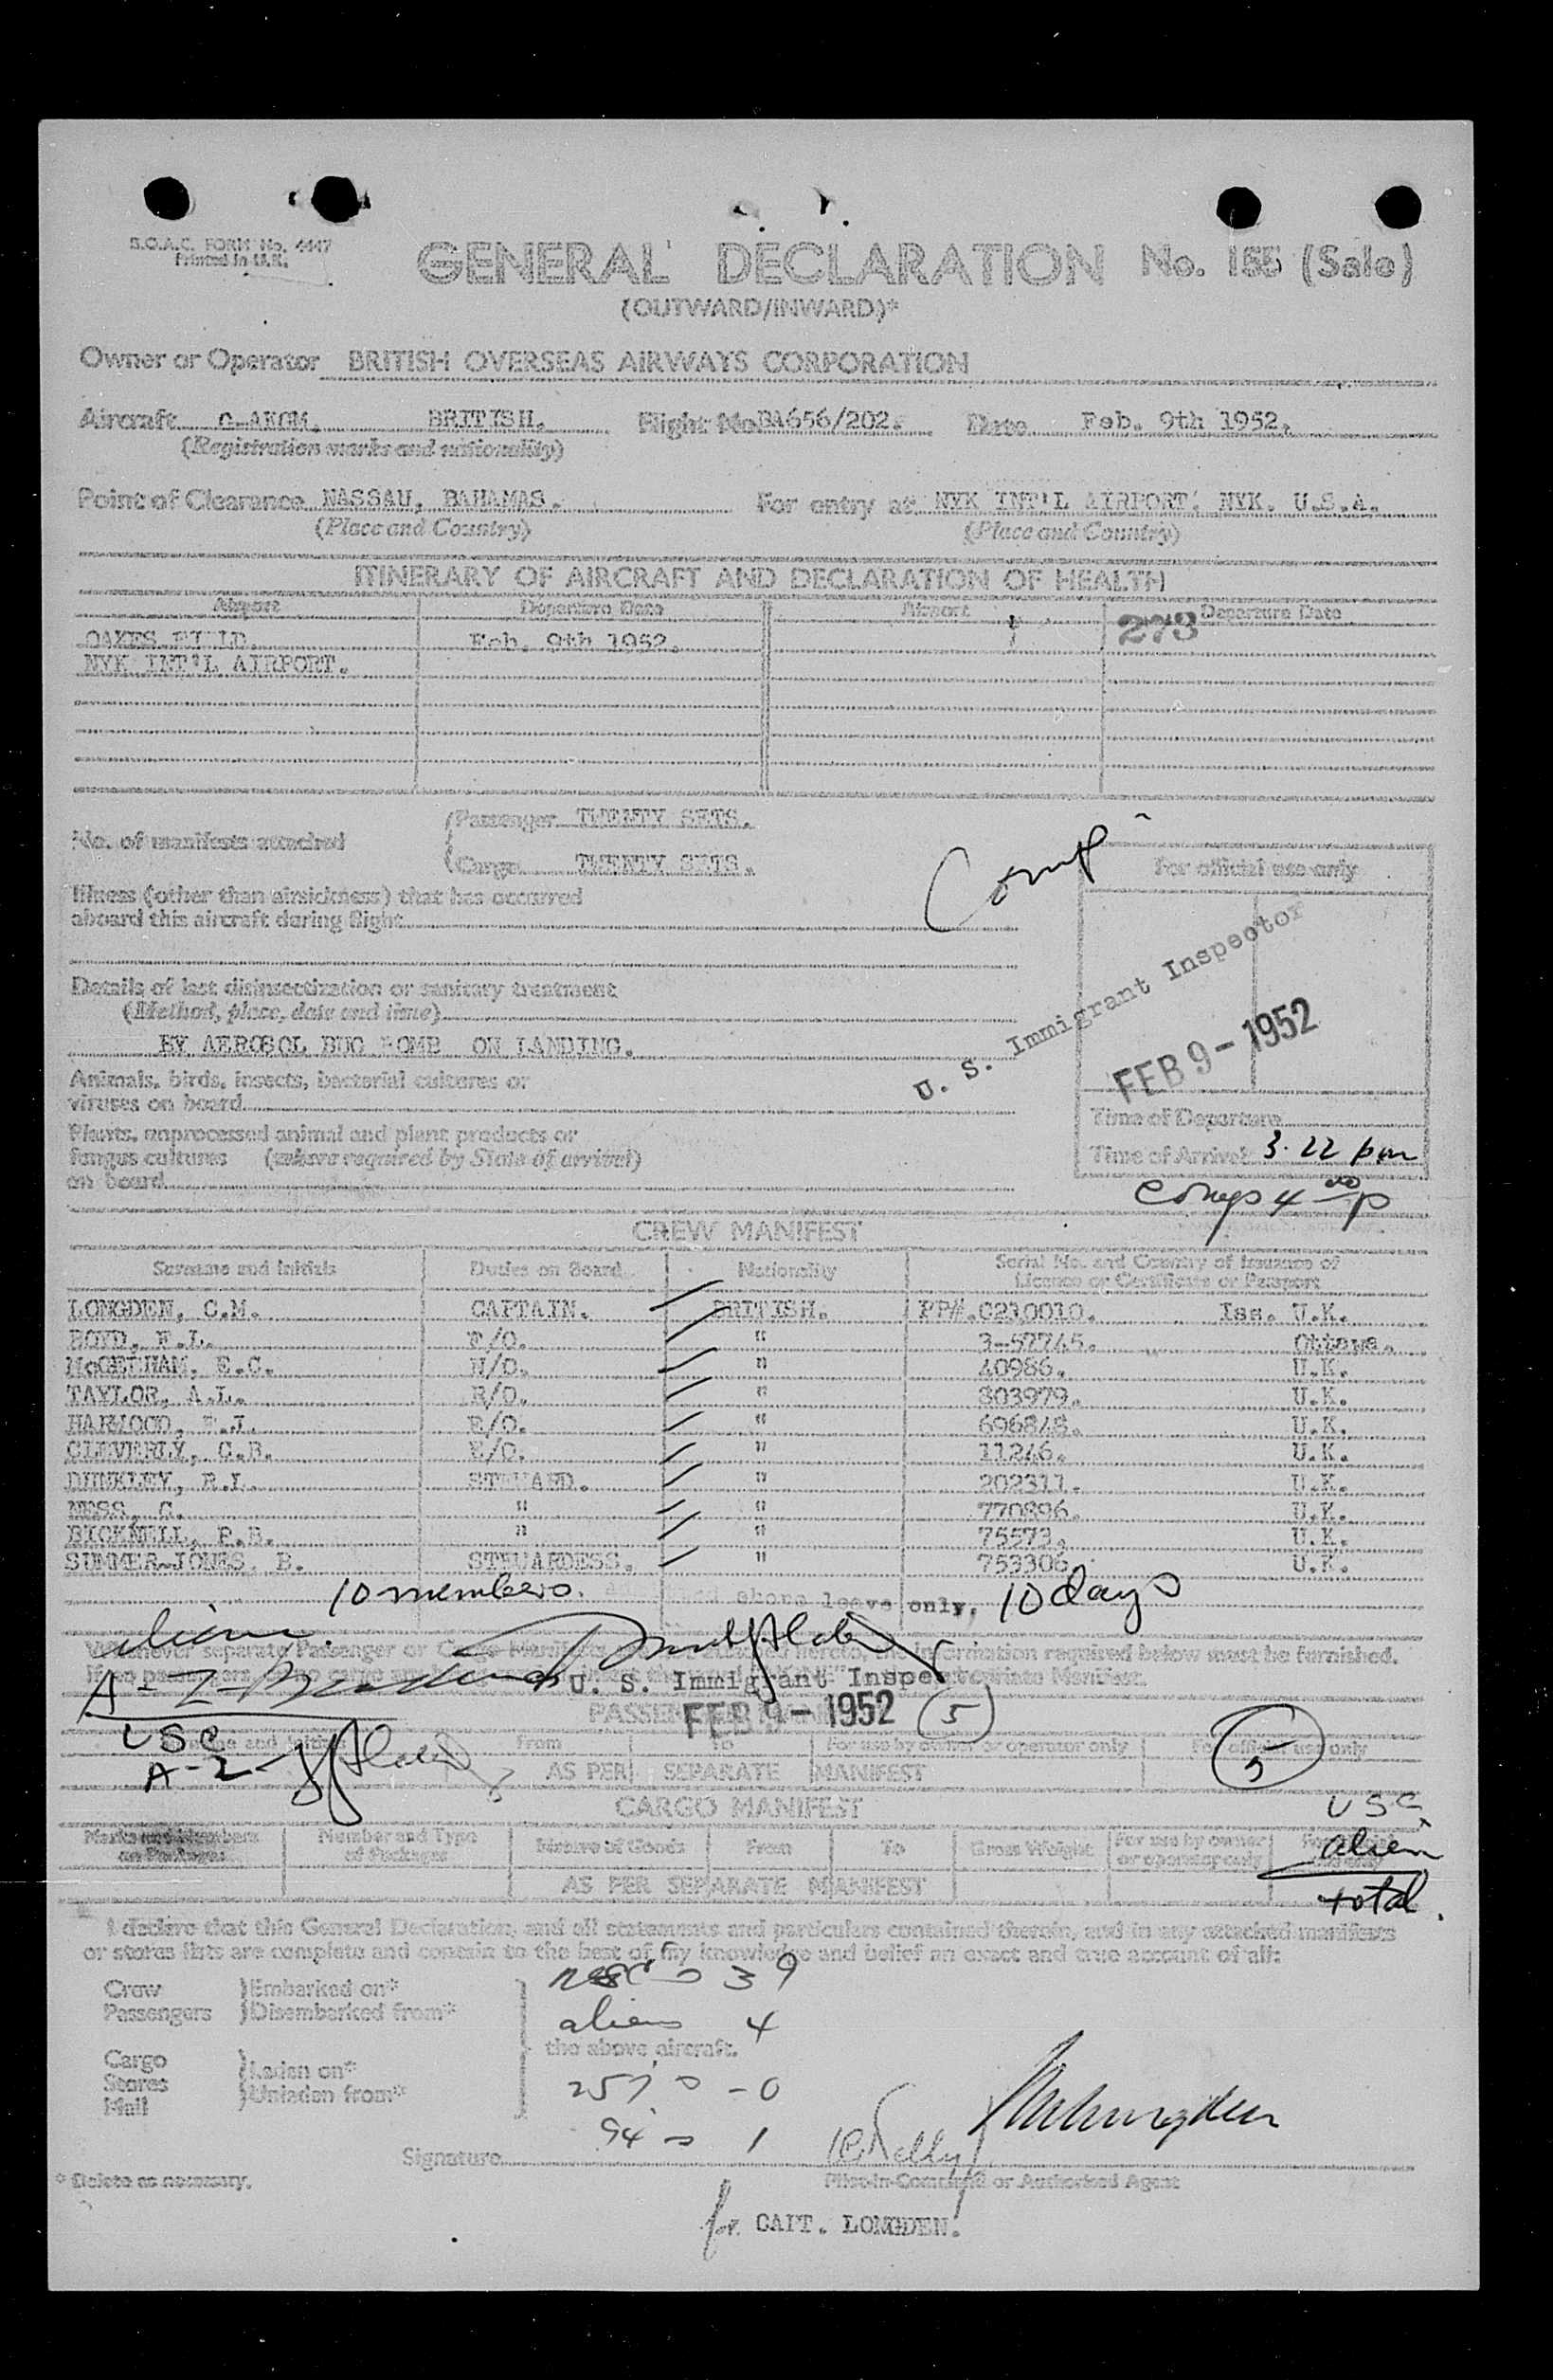 B.O.A.C. FORM No. 4447
Printed in U.K.
GENERAL DECLARATION No. 155 (Sale)
(OUTWARD/INWARD)*
Owner or Operator BRITISH OVERSEAS AIRWAYS CORPORATION
Aircraft BRITISH. Flight No. BA656/202. Date Feb. 9th 1952.
(Registration marks and nationality)
Point of Clearance NASSAU, BAHAMAS. For entry at NYK INT'L AIRPORT. NYK. U.S.A.
(Place and Country) (Place and Country)
ITINERARY OF AIRCRAFT AND DECLARATION OF HEALTH
Airport Departure Date Airport Departure Date
273
OAKES FIELD. Feb. 9th 1952.
NYK INT'L AIRPORT.
No. of manifests attached
Passenger TWENTY SETS.
Cargo TWENTY SETS.
Comp
For official use only
Illness (other than airsickness) that has occurred
aboard this aircraft during flight
U. S. Immigrant Inspector
Details of last disinsectization or sanitary treatment
(Method, place, date and time)
FEB 9 - 1952
BY AEROSOL BUG BOMB ON LANDING.
Animals, birds, insects, bacterial cultures or
viruses on board
Time of Departure
Plants, unprocessed animal and plant products or
fungus cultures (where required by State of arrival)
on board
Time of Arrival 3.22 pm
Comp 4 00 p
CREW MANIFEST
Surname and Initials Duties on Board Nationality Serial No. and Country of Issuance of
Licence or Certificate or Passport
LONGDEN, C.M. CAPTAIN. BRITISH. PP#.C210010. Iss. U.K.
BOYD, F.L. F/O. " 3-57745. Ottawa.
E.C. N/O. " 40986. U.K.
TAYLOR, A.L. R/O. " 803979. U.K.
HARWOOD, E.J. E/O. " 696848. U.K.
CLEVERLY, C.B. E/O. " 11246. U.K.
DUNKLEY, R.L. STEWARD. " 202311. U.K.
NESS, G. " " 770896. U.K.
BICKNELL, P.B. " " 75573. U.K.
SUMNER-JONES, B. STEWARDESS. " 753306. U.K.
10 members. shore leave only, 10 days
aliens.
Whenever separate Passenger or Cargo Manifests attached hereto, the information required below must be furnished.
A-
U. S. Immigrant Inspector
FEB 9 - 1952 5
USC
A-2
From To For use by owner or operator only For official use only
AS PER SEPARATE MANIFEST
5
CARGO MANIFEST
USC
Marks and Numbers
on Packages
Number and Type
of Packages
Nature of Goods From To Gross Weight For use by owner
or operator only
alien
AS PER SEPARATE MANIFEST
total.
I declare that this General Declaration, and all statements and particulars contained therein, and in any attached manifests
or stores lists are complete and contain to the best of my knowledge and belief an exact and true account of all:
39
Crew
Passengers
Embarked on*
Disembarked from*
aliens 4
the above aircraft.
Cargo
Stores
Mail
Laden on*
Unladen from*
257 s - 0
94 s 1
Signature
* Delete as necessary.
Pilot-in-Command or Authorised Agent
for CAPT. LONGDEN.